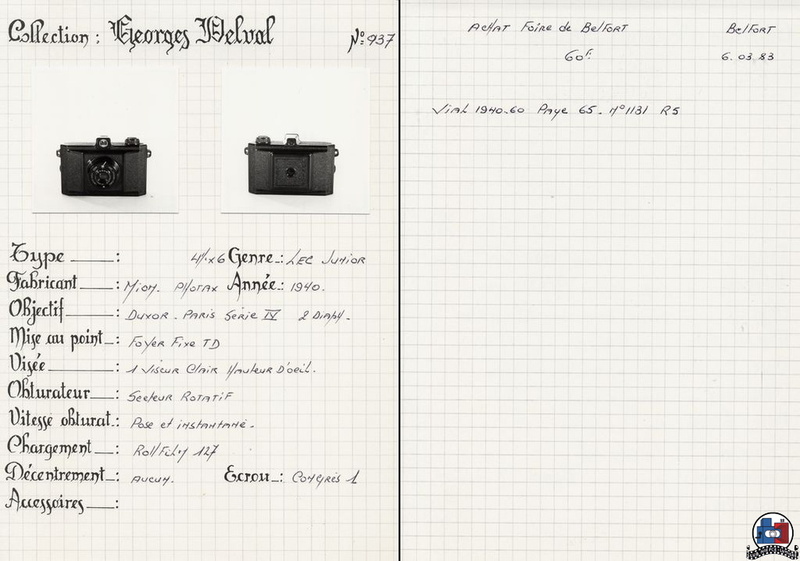 Collection : Georges Delval
N°: 937
Type : 4x6 Genre : LEC JUNIOR
Fabricant : Miom. Photax Année : 1940.
Objectif : Duxor - Paris Série IV 2 Diaph.
Mise au point : Foyer Fixe TD
Visée : 1 Viseur Clair Hauteur D'oeil.
Obturateur : Secteur Rotatif
Vitesse obturat. : Pose et instantané.
Chargement : Rollfilm 127
Décentrement : Aucun. Ecrou : Congrès 1
Accessoires :
Achat Foire de Belfort Belfort
60F. 6.03.83
Vial 1940-60 Page 65 - N°1131 R5